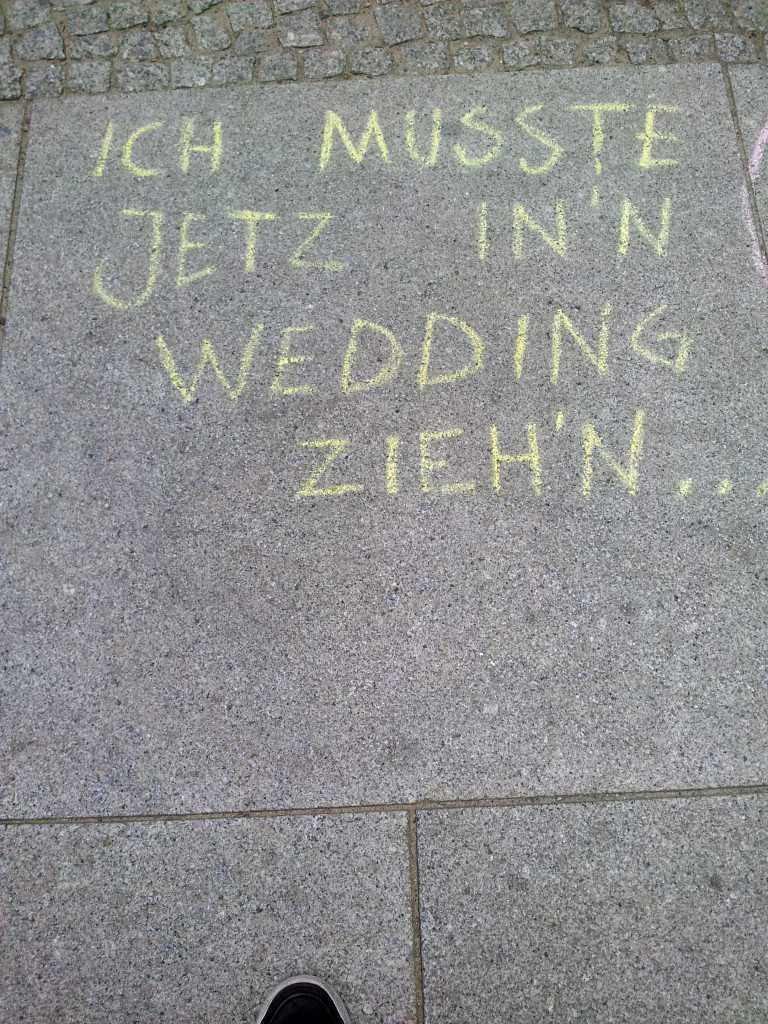 ICH MUSSTE
JETZ IN'N
WEDDING
ZIEH'N...